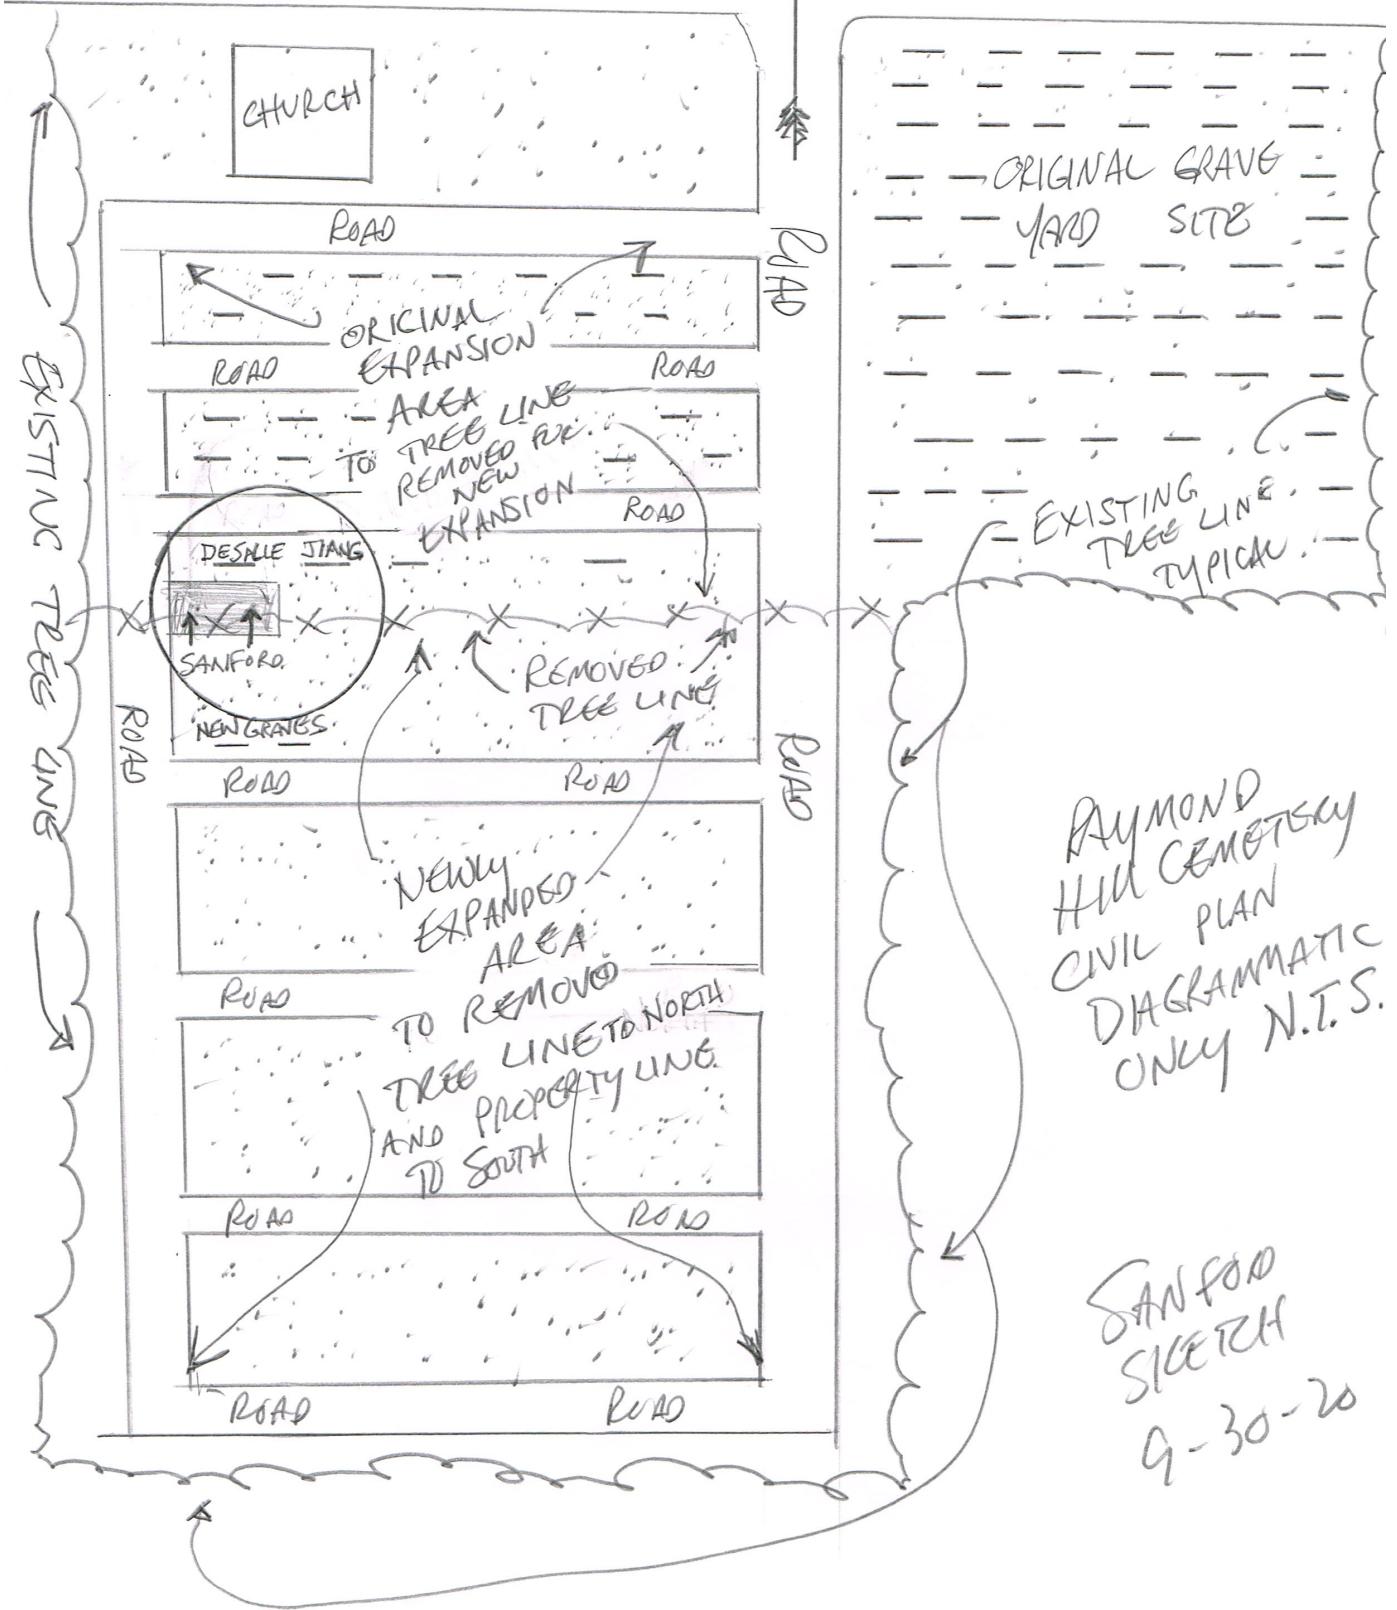 CHURCH
ROAD
ROAD
ORIGINAL GRAVE
YARD SITE
ORIGINAL
EXPANSION
AREA
TO TREE LINE
REMOVED FOR
NEW
EXPANSION
ROAD
ROAD
ROAD
EXISTING TREE LINE
EXISTING
TREE LINE
TYPICAL
DESALLE JIANG
SANFORD
NEW GRAVES
REMOVED
TREE LINE
ROAD
ROAD
ROAD
ROAD
NEWLY
EXPANDED
AREA
TO REMOVED
TREE LINE TO NORTH
AND PROPERTY LINE
TO SOUTH
ROAD
ROAD
ROAD
ROAD
ROAD
RAYMOND
HILL CEMETERY
CIVIL PLAN
DIAGRAMMATIC
ONLY N.T.S.
SANFORD
SKETCH
9-30-20